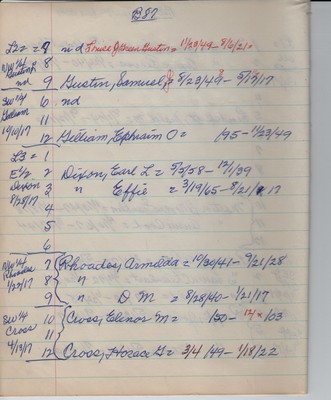 B27
L2 = 7 nd Louise J Green Gustin = 11/23/49 - 8/6/21
N W 1/4 8
Gustin
nd 9 Gustin, Samuel = 8/23/49 - 5/13/17
S W 1/4 6 nd
Gilliam 11
10/10/17 12 Gilliam, Ephraim O = /95 - 11/23/49
L3 = 1
E 1/2 2 Dixon, Earl L = 5/5/58 - 12/1/39
Dixon 3 " Effie = 3/19/65 - 8/21/17
8/28/17 4
5
6
N W 1/4 7 Rhoades, Armilda = 10/30/41 - 9/21/28
Rhoades 8 "
1/22/17 9 " D M = 8/28/40 - 1/21/17
S W 1/4 10 Cross, Elinor M = /50 - 12/x/03
Cross 11
4/13/17 12 Cross, Horace G = 3/4/49 - 1/18/22